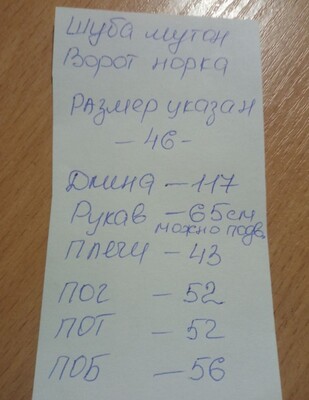 Шуба мутон
Ворот норка
Размер указан
- 46 -
Длина - 117
Рукав - 65см
можно подв.
Плечи - 43
ПОГ - 52
ПОТ - 52
ПОБ - 56